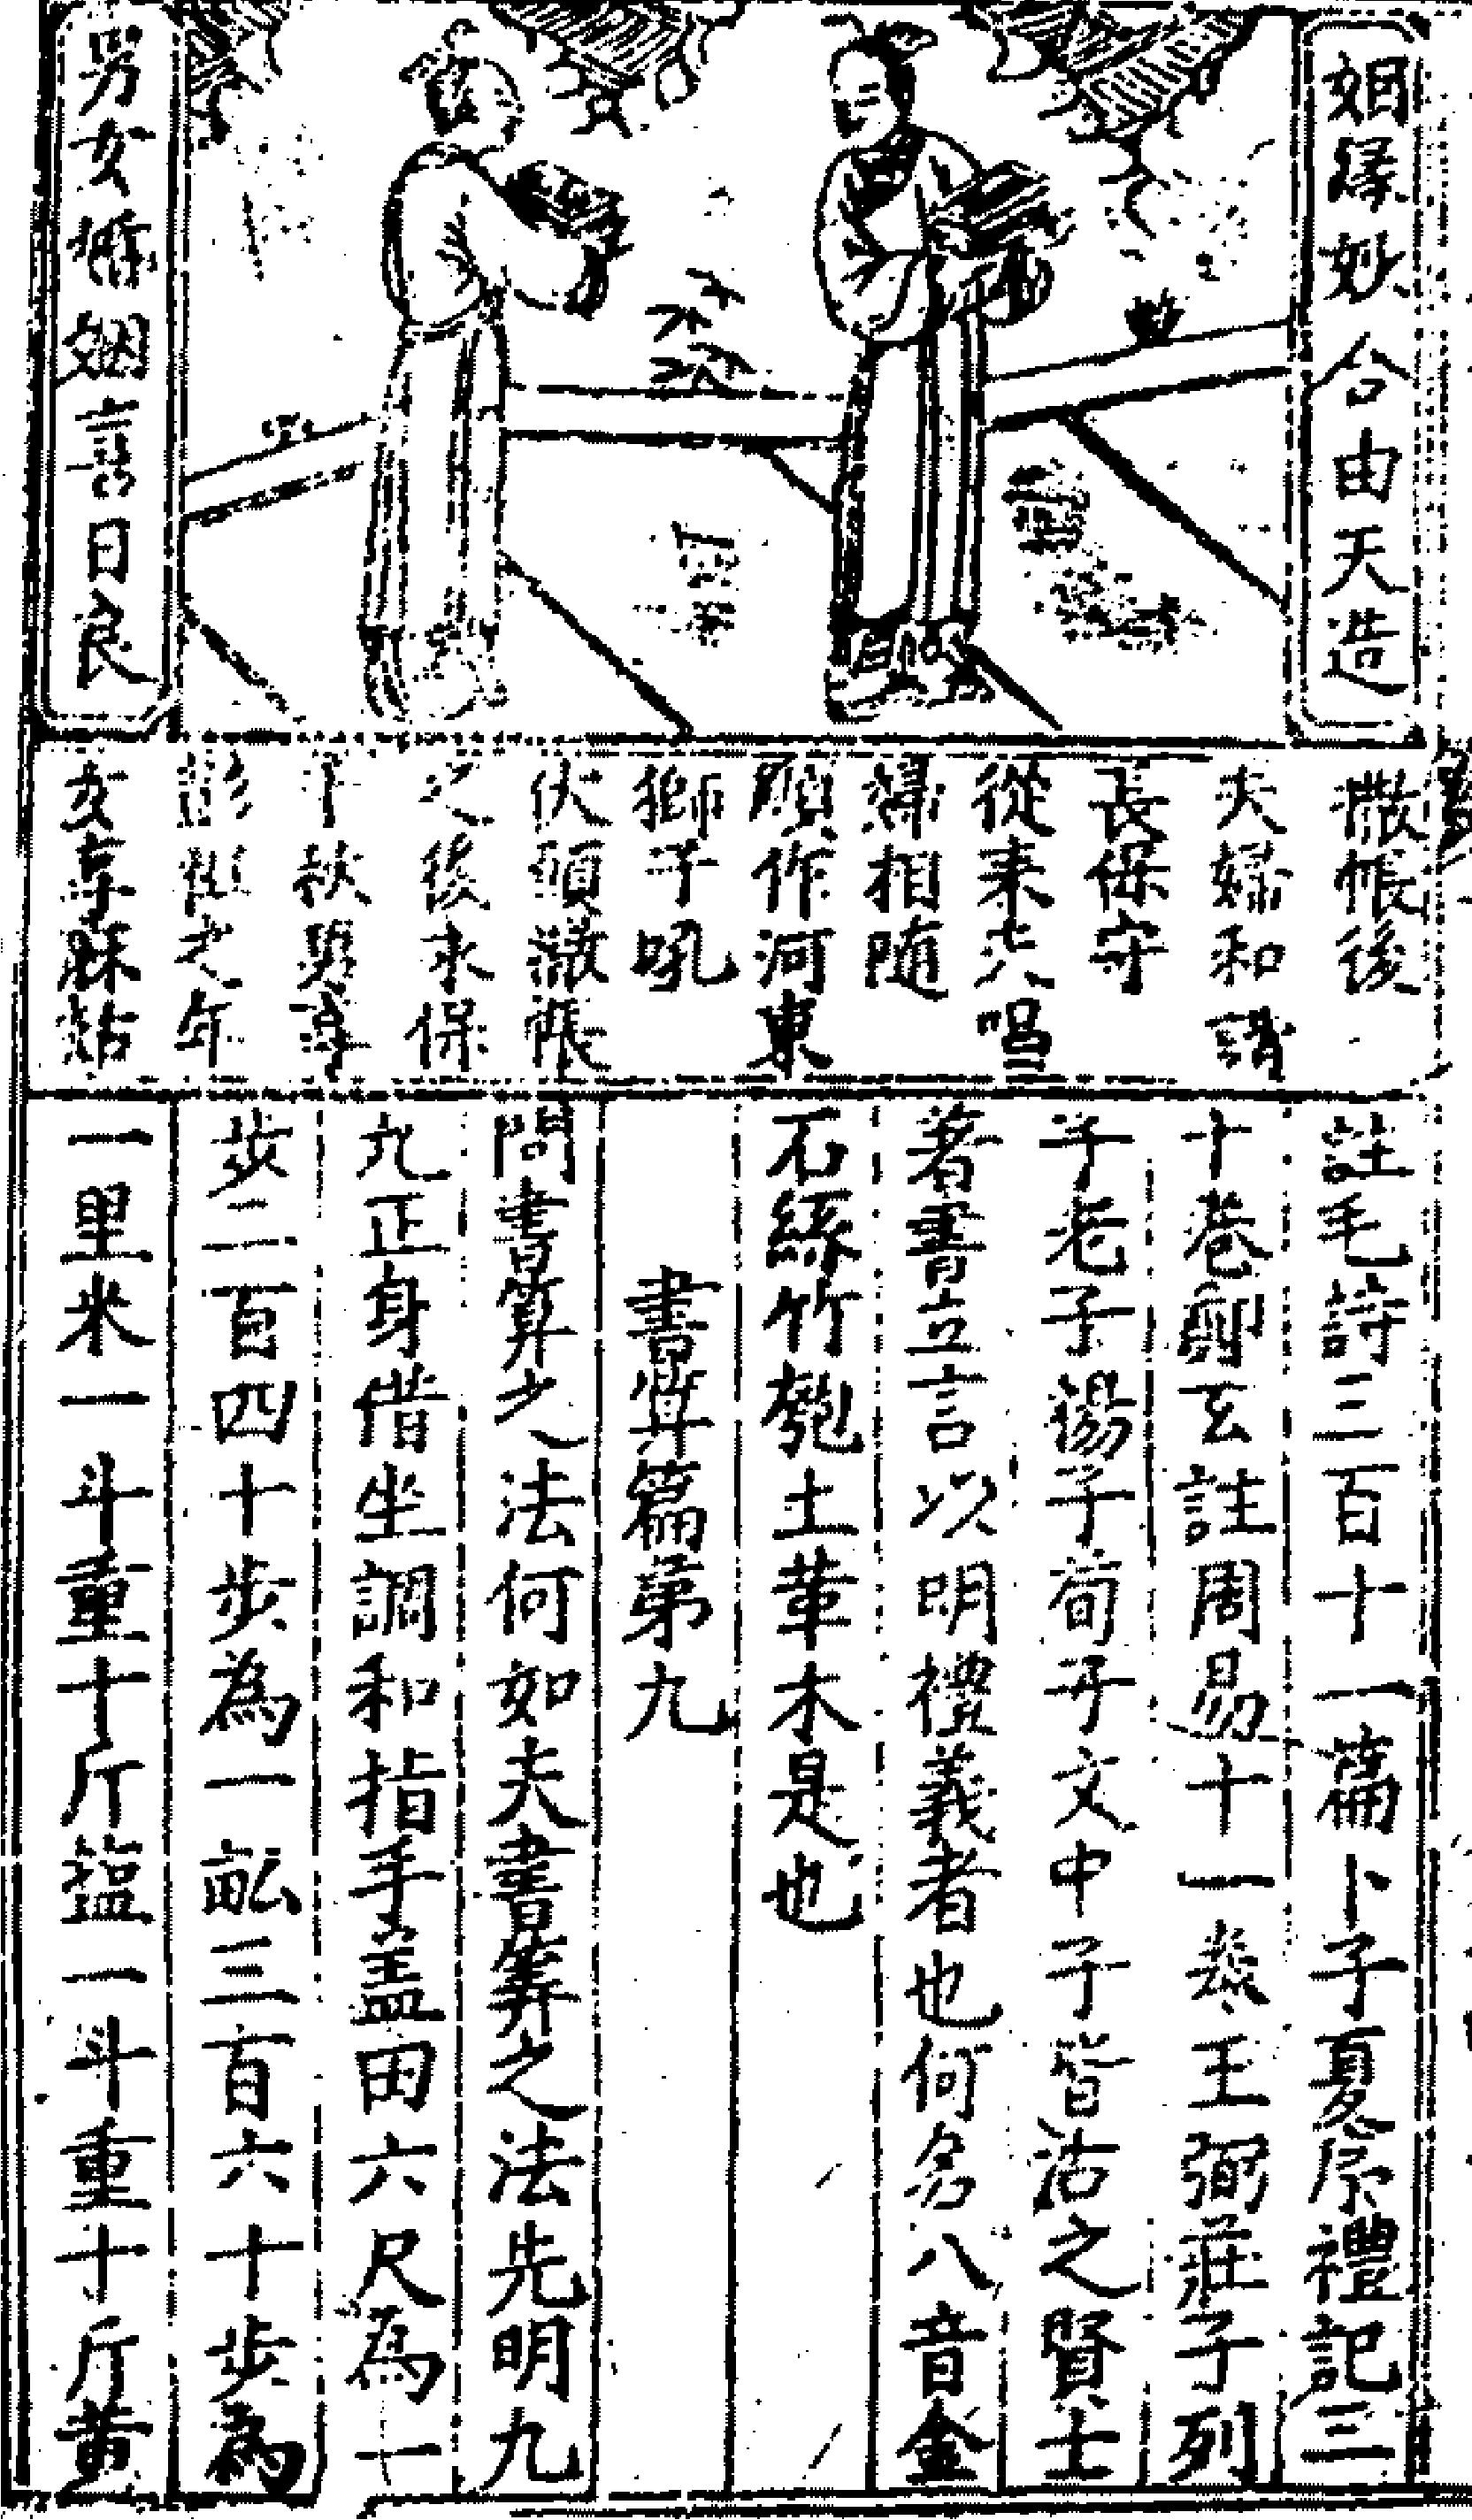 姻緣妙合由天造
男女婚姻喜日良
撒帳後
夫婦和諧
長保守
從来夫唱
婦相随
願作河東
獅子吼
伏願撒帳
之後永保
千秋男享
彭祖之年
女享麻姑
註毛詩三百十一篇卜子夏序禮記三
十卷鄭玄註周易十一卷王弼莊子列
子老子揚子荀子文中子皆沽之賢士
著書立言以明禮義者也何名八音金
石絲竹匏土革木是也
書算篇第九
問書算之法何如夫書筭之法先明九
九正身借坐調和指手盖田六尺為一
步二百四十步為一畝三百六十步為
一里米一斗重十斤塩一斗重十斤黄